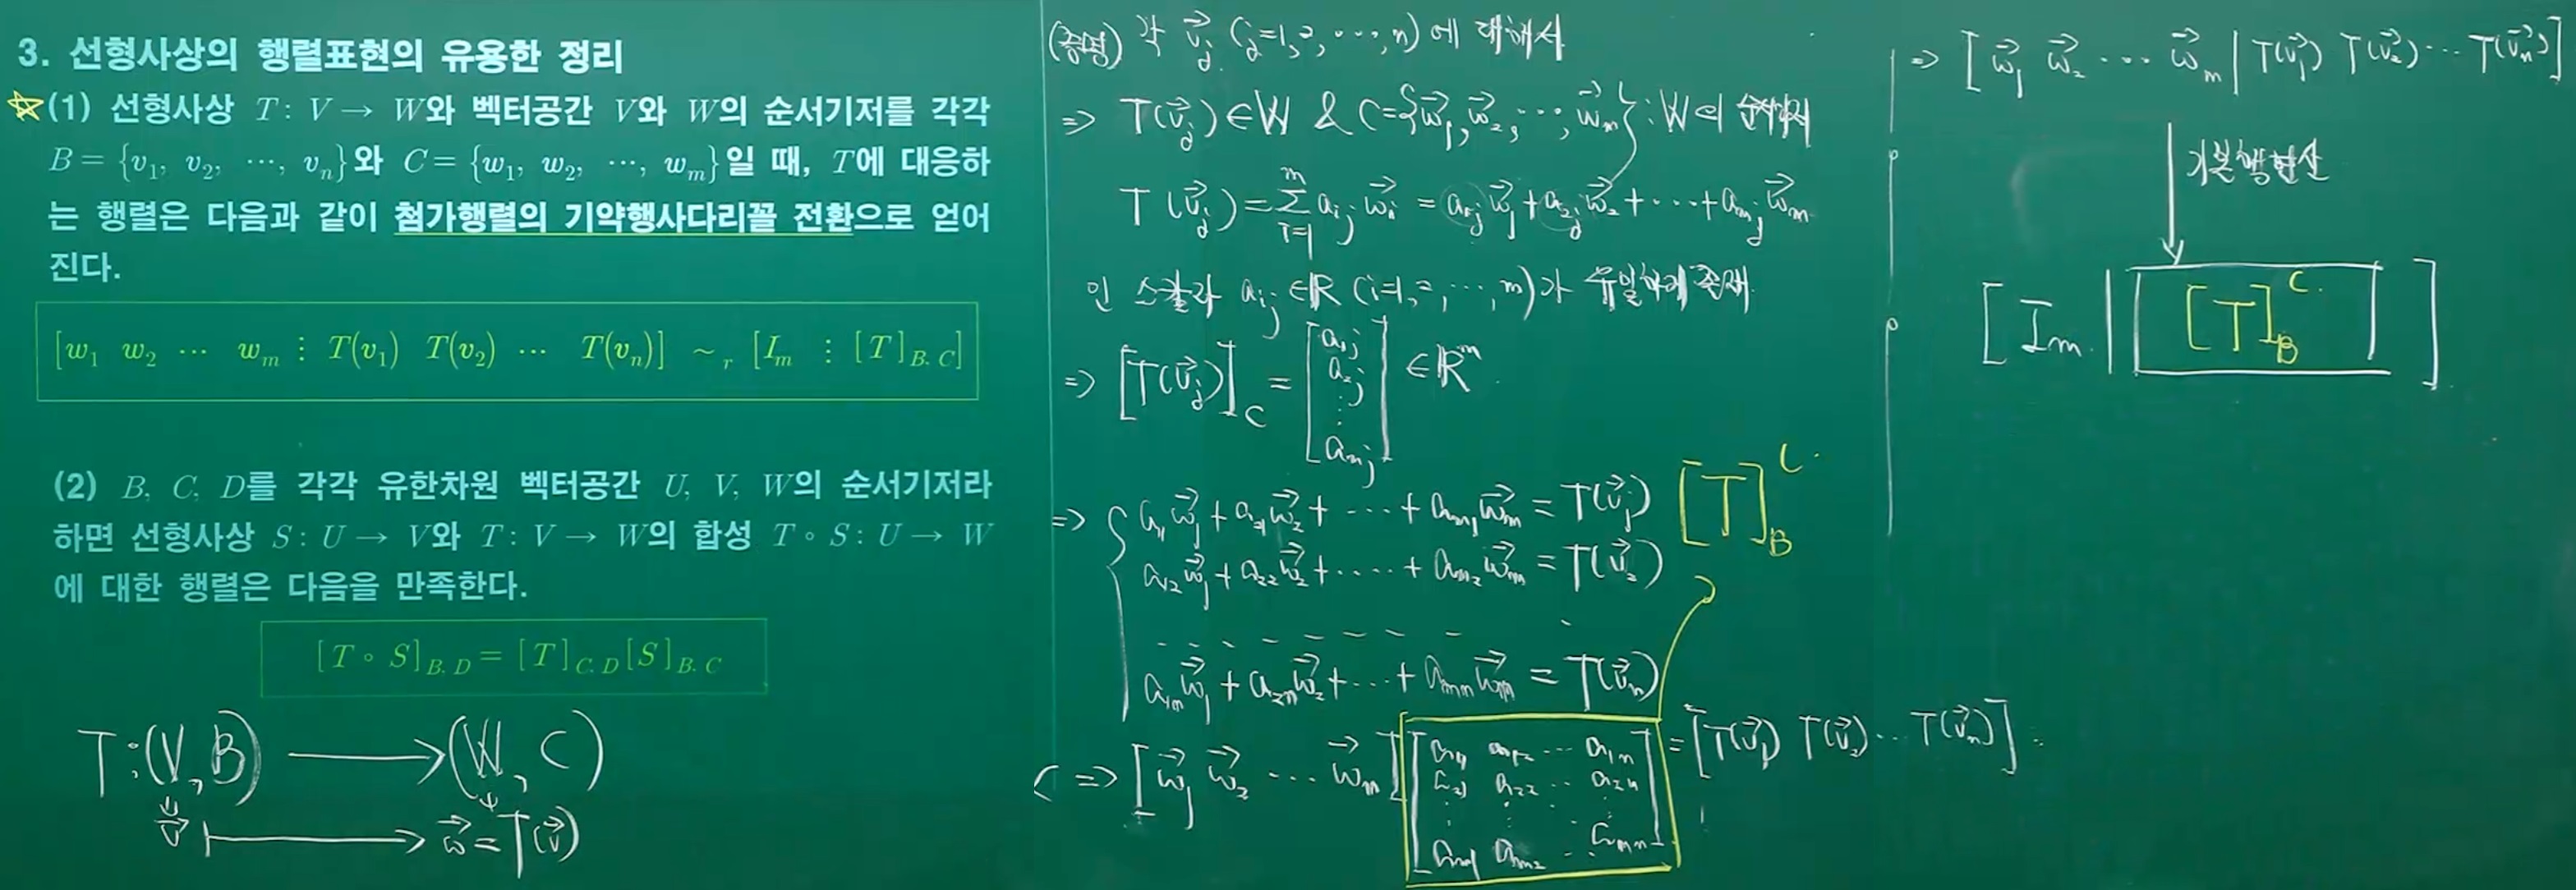 3. 선형사상의 행렬표현의 유용한 정리
☆(1) 선형사상 T : V → W와 벡터공간 V와 W의 순서기저를 각각
B = {v₁, v₂, ⋯, vₙ}와 C = {w₁, w₂, ⋯, wₘ}일 때, T에 대응하
는 행렬은 다음과 같이 첨가행렬의 기약행사다리꼴 전환으로 얻어
진다.
[w₁ w₂ ⋯ wₘ ⋮ T(v₁) T(v₂) ⋯ T(vₙ)] ~ᵣ [Iₘ ⋮ [T]_{B, C}]
(2) B, C, D를 각각 유한차원 벡터공간 U, V, W의 순서기저라
하면 선형사상 S : U → V와 T : V → W의 합성 T∘S : U → W
에 대한 행렬은 다음을 만족한다.
[T∘S]_{B, D} = [T]_{C, D}[S]_{B, C}
T : (V, B) → (W, C)
v⃗ ↦ w⃗ = T(v⃗)
(증명) 각 v⃗_j (j=1, 2, ⋯, n)에 대해서
⇒ T(v⃗_j) ∈ W & C = {w⃗₁, w⃗₂, ⋯, w⃗ₘ} : W의 순서기저
T(v⃗_j) = Σ_{i=1}^{m} a_{ij} w⃗_i = a_{1j} w⃗₁ + a_{2j} w⃗₂ + ⋯ + a_{mj} w⃗ₘ
인 스칼라 a_{ij} ∈ ℝ (i=1, 2, ⋯, m)가 유일하게 존재
⇒ [T(v⃗_j)]_C = [a_{1j} a_{2j} ⋮ a_{mj}] ∈ ℝᵐ
⇒ { a₁₁w⃗₁ + a₂₁w⃗₂ + ⋯ + a_{m1}w⃗ₘ = T(v⃗₁)
[T]_B^C
a₁₂w⃗₁ + a₂₂w⃗₂ + ⋯ + a_{m2}w⃗ₘ = T(v⃗₂)
a_{1n}w⃗₁ + a_{2n}w⃗₂ + ⋯ + a_{mn}w⃗ₘ = T(v⃗ₙ)
⇒ [w⃗₁ w⃗₂ ⋯ w⃗ₘ] [a₁₁ a₁₂ ⋯ a_{1n}
a₂₁ a₂₂ ⋯ a_{2n}
⋮ ⋮ ⋮
a_{m1} a_{m2} ⋯ a_{mn}] = [T(v⃗₁) T(v⃗₂) ⋯ T(v⃗ₙ)]
⇒ [w⃗₁ w⃗₂ ⋯ w⃗ₘ | T(v⃗₁) T(v⃗₂) ⋯ T(v⃗ₙ)]
기본행연산
[Iₘ | [T]_B^C]